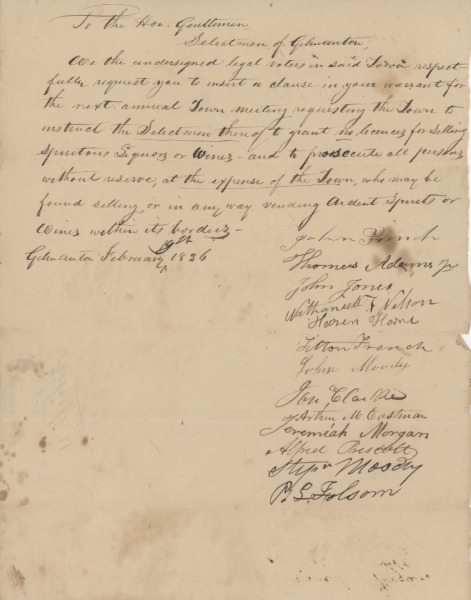 To the Hon. Gentlemen
Selectmen of Gilmanton,
We the undersigned legal voters in said Town respect
fully request you to insert a clause in your warrant for
the next annual Town meeting requesting the Town to
instruct the Selectmen thereof to grant no licences for selling
Spiritous Liquors or Wines - and to prosecute all persons
without reserve, at the expense of the Town, who may be
found selling or in any way vending Ardent Spirits or
Wines within its borders -
Gilmanton February 19th 1836
John French
Thomas Adams Jr
John Jones
Nathaniell F Nelson
Haven
Titton French
John Moody
Jon Clarke
Arthur M Eastman
Jeremiah Morgan
Alfred Prescott
Stepn Moody
P. S. Folsom